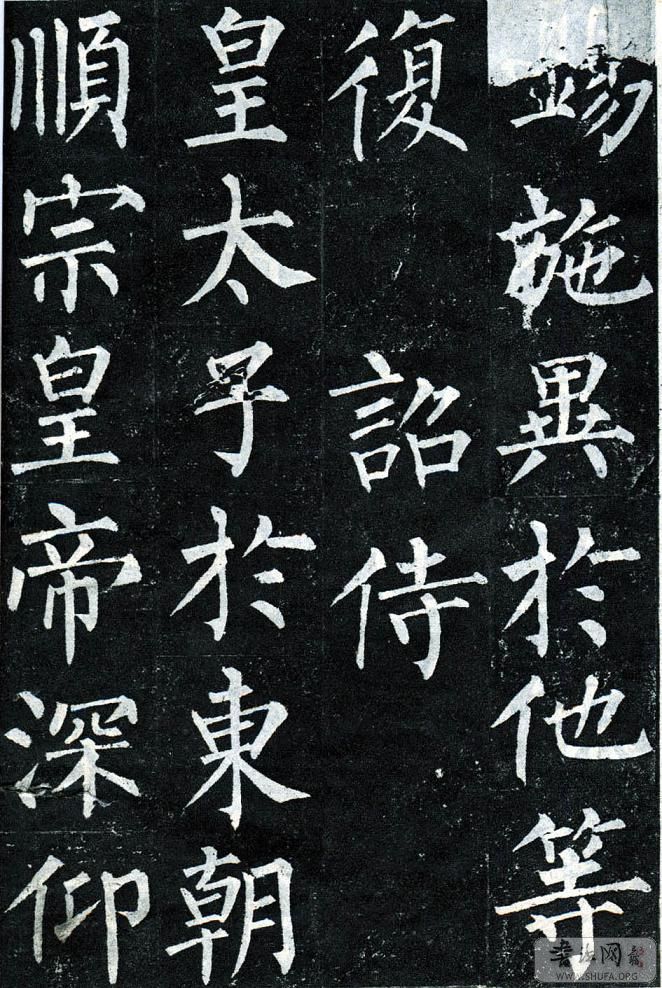 施異於他等
復 詔侍
皇太子於東朝
順宗皇帝深仰
書法网
WWW.SHUFA.ORG